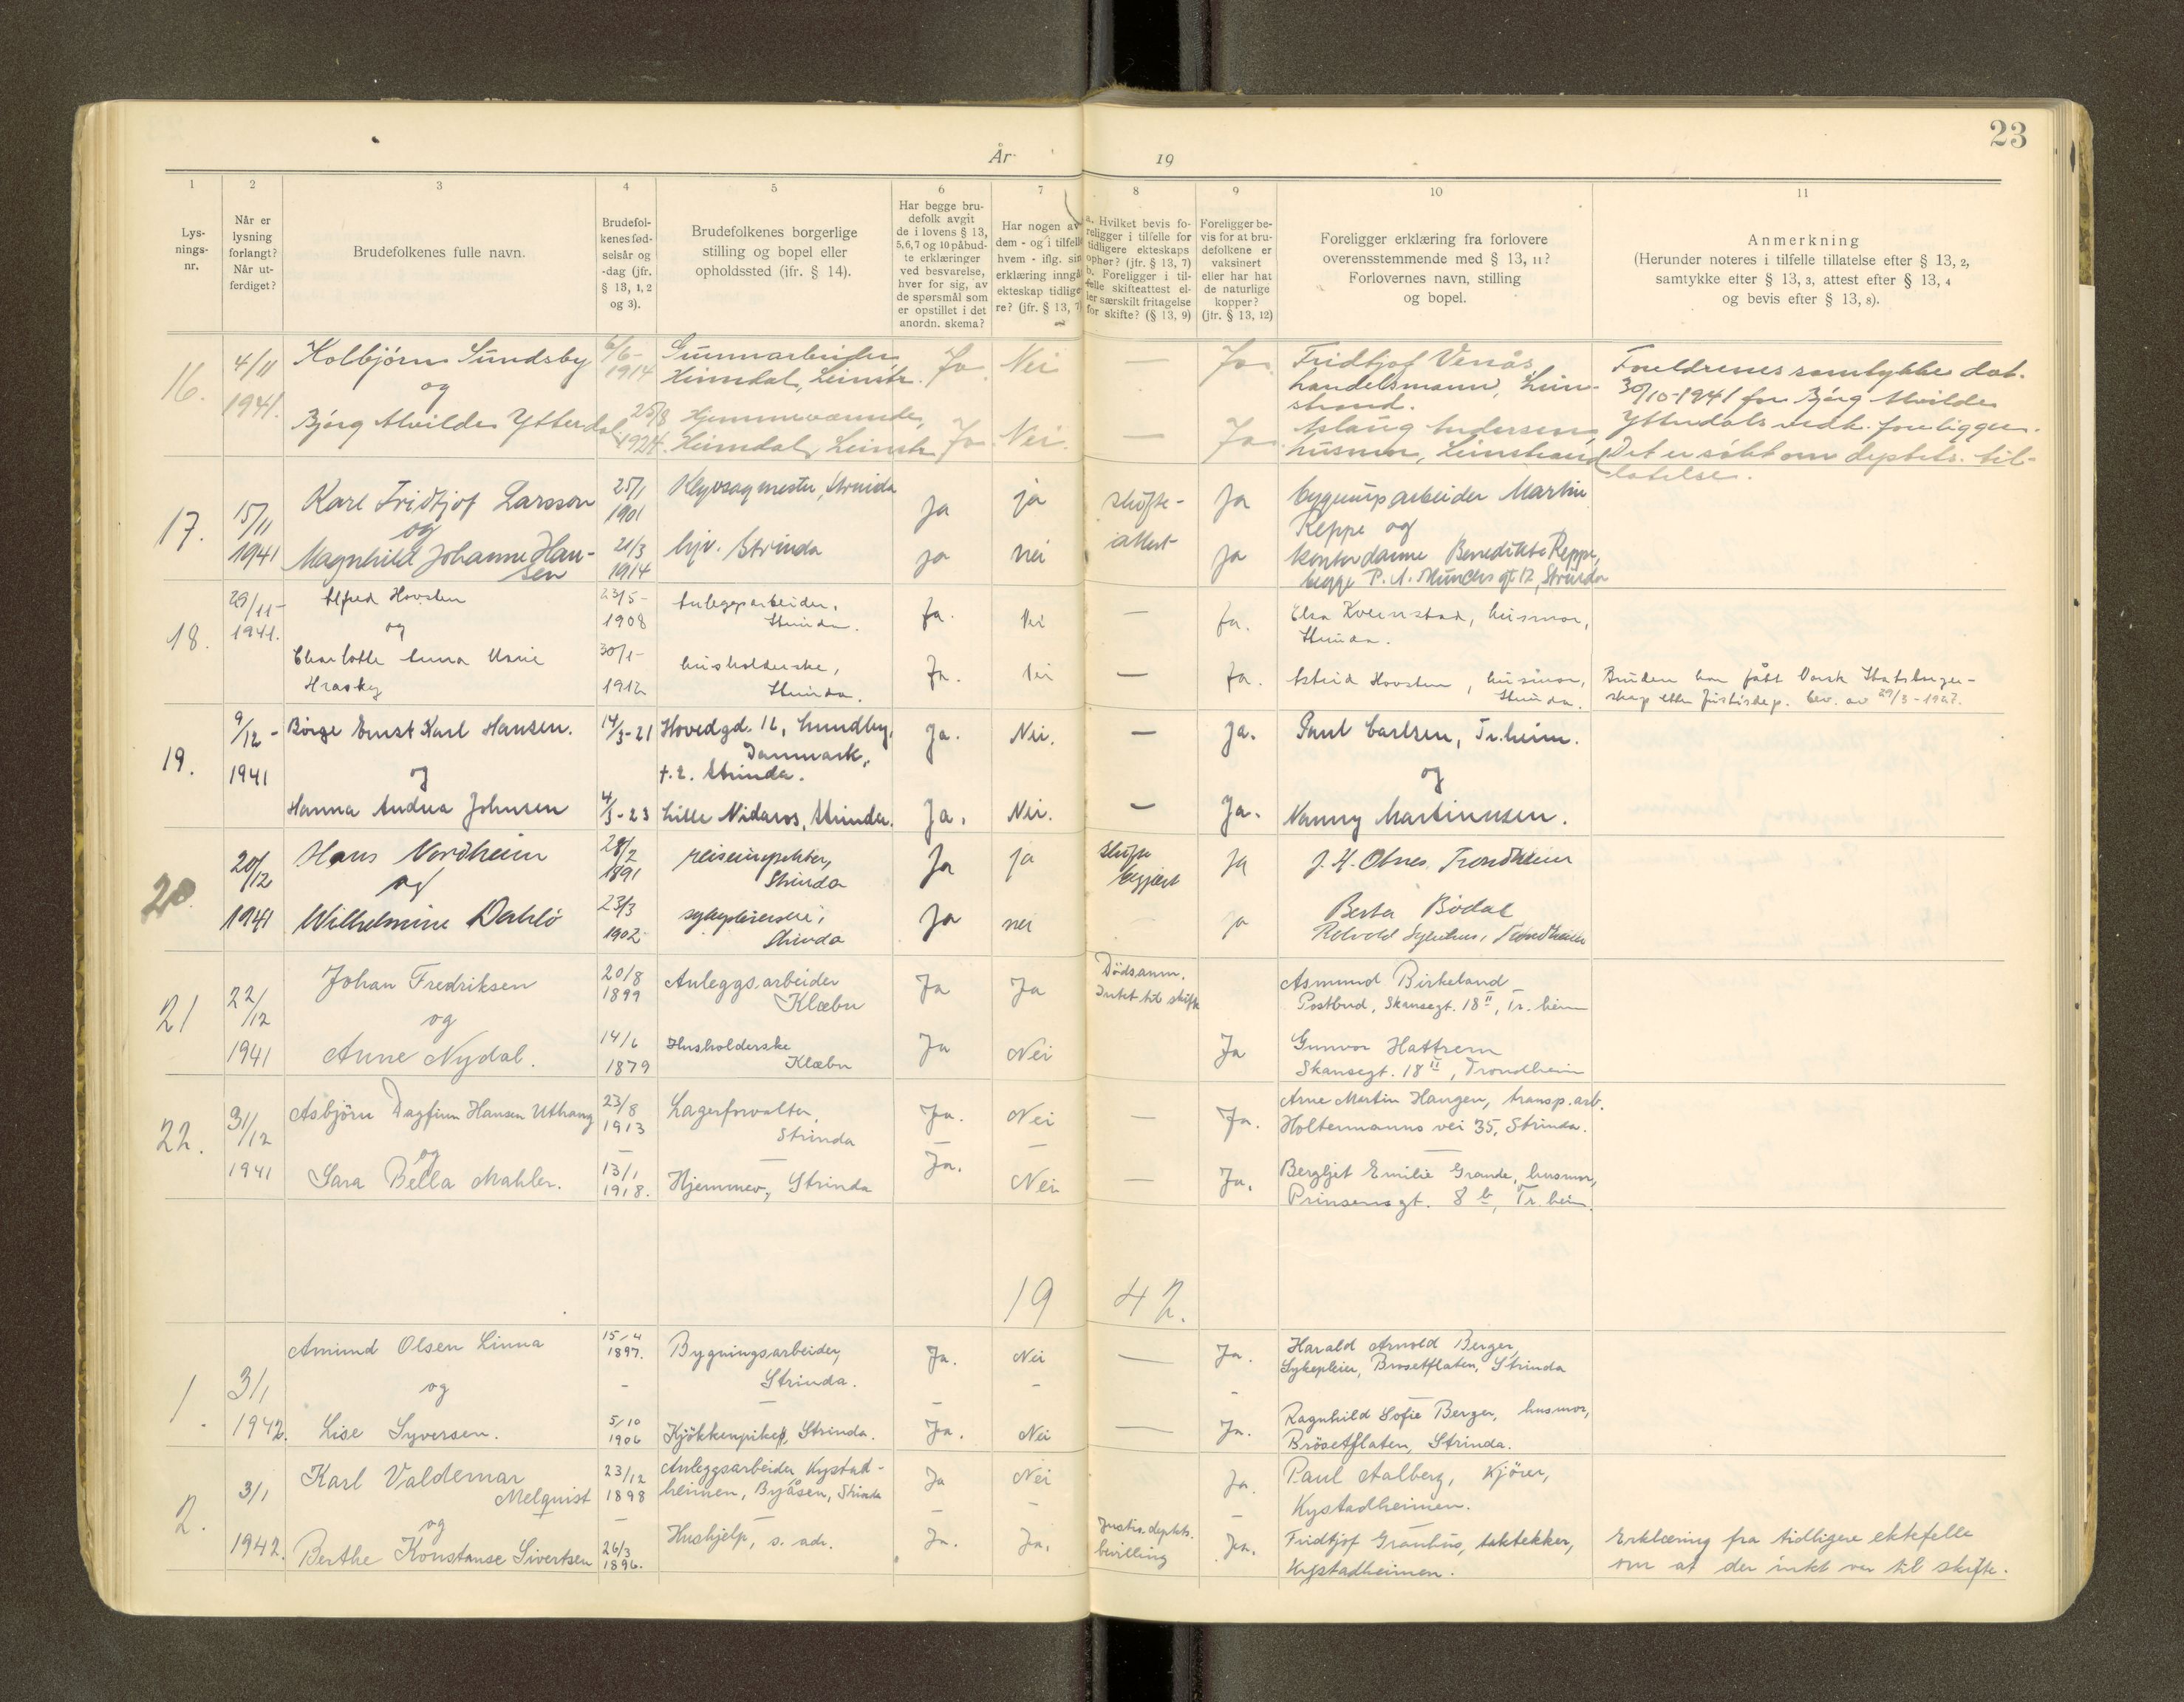 23
År 19
1 2 3 4 5 6 7 8 9 10 11
Lys-
nings-
nr.
Når er
lysning
forlangt?
Når ut-
ferdiget?
Brudefolkenes fulle navn.
Brudefol-
kenes fød-
selsår og
-dag (jfr.
§ 13, 1, 2
og 3).
Brudefolkenes borgerlige
stilling og bopel eller
opholdssted (jfr. § 14).
Har begge bru-
defolk avgit
de i lovens § 13,
5,6,7 og 10 påbud-
te erklæringer
ved besvarelse,
hver for sig, av
de spørsmål som
er opstillet i det
anordn. skema?
Har nogen av
dem - og i tilfelle
hvem - iflg. sin
erklæring inngå
ekteskap tidlige
re? (jfr. § 13, 7)
a. Hvilket bevis fo-
religger i tilfelle for
tidligere ekteskaps
ophør? (jfr. § 13, 7)
b. Foreligger i til-
felle skifteattest el-
ler særskilt fritagelse
for skifte? (§ 13, 9)
Foreligger be-
vis for at bru-
defolkene er
vaksinert
eller har hat
de naturlige
kopper?
(jfr. § 13, 12)
Foreligger erklæring fra forlovere
overensstemmende med § 13, 11?
Forlovernes navn, stilling
og bopel.
Anmerkning
(Herunder noteres i tilfelle tillatelse efter § 13, 2,
samtykke efter § 13, 3, attest efter § 13, 4
og bevis efter § 13, 8).
16.
4/11
1941.
Kolbjørn Sundsby
og
Bjørg Alvilde Ytterdal
6/6-
1914
25/8
1924.
Gummarbeider
Heimdal, Leinstr.
Hjemmeværende,
Heimdal, Leinstr.
Ja. Nei — Ja.
Ja. Nei. — Ja.
Fridtjof Venås,
handelsmann, Lein-
strand.
Aslaug Andersen,
husmor, Leinstrand
Foreldrenes samtykke dat.
30/10-1941 for Bjørg Alvilde
Ytterdals vedk. foreligger.
Det er søkt om deptets. til-
latelse.
17.
15/11
1941
Karl Fridtjof Larsson
og
Magnhild Johanne Han-
sen
25/1
1901
21/3
1914
Klyvsagmester, Strinda
hjv. Strinda
Ja ja
ja nei
skifte-
attest
Ja
ja
bygningsarbeider Martin
Reppe og
kontordame Benedikte Reppe,
begge P. A. Munchs gt 12, Strinda
18.
29/11-
1941.
Alfred Hovsten
og
Charlotte Anna Marie
Hrasky
23/5-
1908
30/1-
1912
Anleggsarbeider,
Strinda.
husholderske,
Strinda.
Ja. Nei — Ja.
Ja. Nei — Ja.
Elsa Kvernstad, husmor,
Strinda.
Astrid Hovsten, husmor,
Strinda.
Bruden har fått Norsk Statsborger-
skap etter Justisdep. bev. av 29/3-1927.
19.
9/12-
1941
Børge Ernst Karl Hansen.
og
Hanna Andrea Johnsen
14/3-21
4/3-23
Hovedgd. 12, Lundby,
Danmark,
t.z. Strinda.
Lille Nidaros, Strinda.
Ja. Nei. — Ja.
Ja. Nei. — Ja.
Paul Carlsen, Tr.heim.
og
Nanny Martinussen.
20.
20/12
1941
Hans Nordheim
og
Wilhelmine Dahlö
28/2
1891
23/3
1902
reiseinspektør,
Strinda
sykepleierske,
Strinda
Ja ja
Ja nei
skifte
begjært
Ja
ja
J. H. Olsnes Trondheim
Berta Bödal
Rotvold Sykehus, Trondheim
21
22/12
1941
Johan Fredriksen
og
Anne Nydal.
20/8
1899
14/6
1879
Anleggsarbeider
Klæbu
Husholderske
Klæbu
Ja Ja
Ja Nei
Dödsanm.
Intet til skifte
Ja
Asmund Birkeland
Postbud, Skansegt. 18 II, Tr.heim
Gunvor Hattrem
Skansegt. 18 II, Trondheim
22.
31/12
1941
Asbjörn Dagfinn Hansen Uthaug
og
Sara Bella Mahler.
23/8
1913
—
13/1
1918.
Lagerforvalter,
Strinda
—
Hjemmev., Strinda
Ja. Nei — Ja.
Ja. Nei — Ja.
Arne Martin Haugen, transp.arb.
Holtermanns vei 35, Strinda.
—
Bergljot Emilie Grande, husmor,
Prinsensgt. 8 b, Tr.heim.
1942.
1.
3/1
1942.
Amund Olsen Linna
og
Lise Syversen.
15/4
1897.
-
5/10
1906
Bygningsarbeider,
Strinda.
—
Kjökkenpike, Strinda.
Ja. Nei — Ja.
Ja. Nei — Ja.
Harald Arnold Berger,
Sykepleier, Brøsetflaten, Strinda
—
Ragnhild Sofie Berger, husmor,
Brösetflaten, Strinda.
2.
3/1
1942.
Karl Valdemar
Melquist
og
Berthe Konstanse Sivertsen
23/12
1898
—
26/3
1896.
Anleggsarbeider Kystad-
heimen, Byåsen, Strinda
—
Hushjelp, s. adr.
Ja Nei Ja.
Ja. Ja.
Justis.deptets.
bevilling
Ja.
Paul Aalberg, kjörer,
Kystadheimen.
—
Fridtjof Grauhus, taktekker,
Kystadheimen.
Erklæring fra tidligere ektefelle
om at der intet var til skifte.